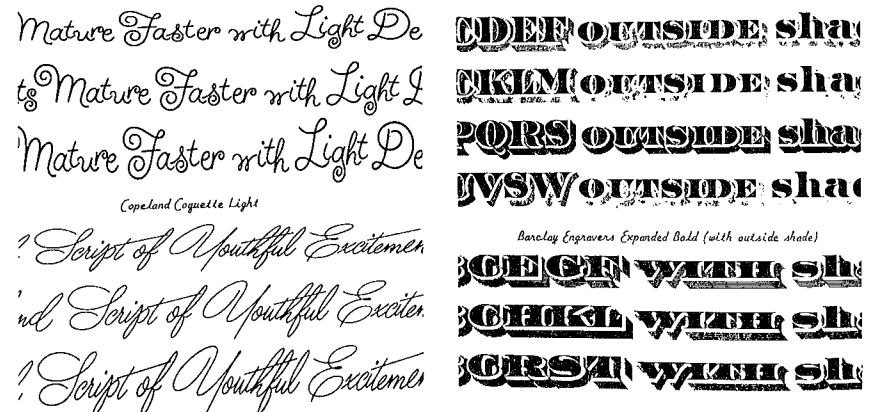 Mature Faster with Light De
ts Mature Faster with Light D
Mature Faster with Light De
Copeland Coquette Light
? Script of Youthful Excitemen
nd Script of Youthful Exciter
? Script of Youthful Excitemen
CDEF OUTSIDE sha
CKLM OUTSIDE sha
PQRS OUTSIDE sha
UVSW OUTSIDE shac
Barclay Engravers Expanded Bold (with outside shade)
WITH sh
WITH sh
WITH sh